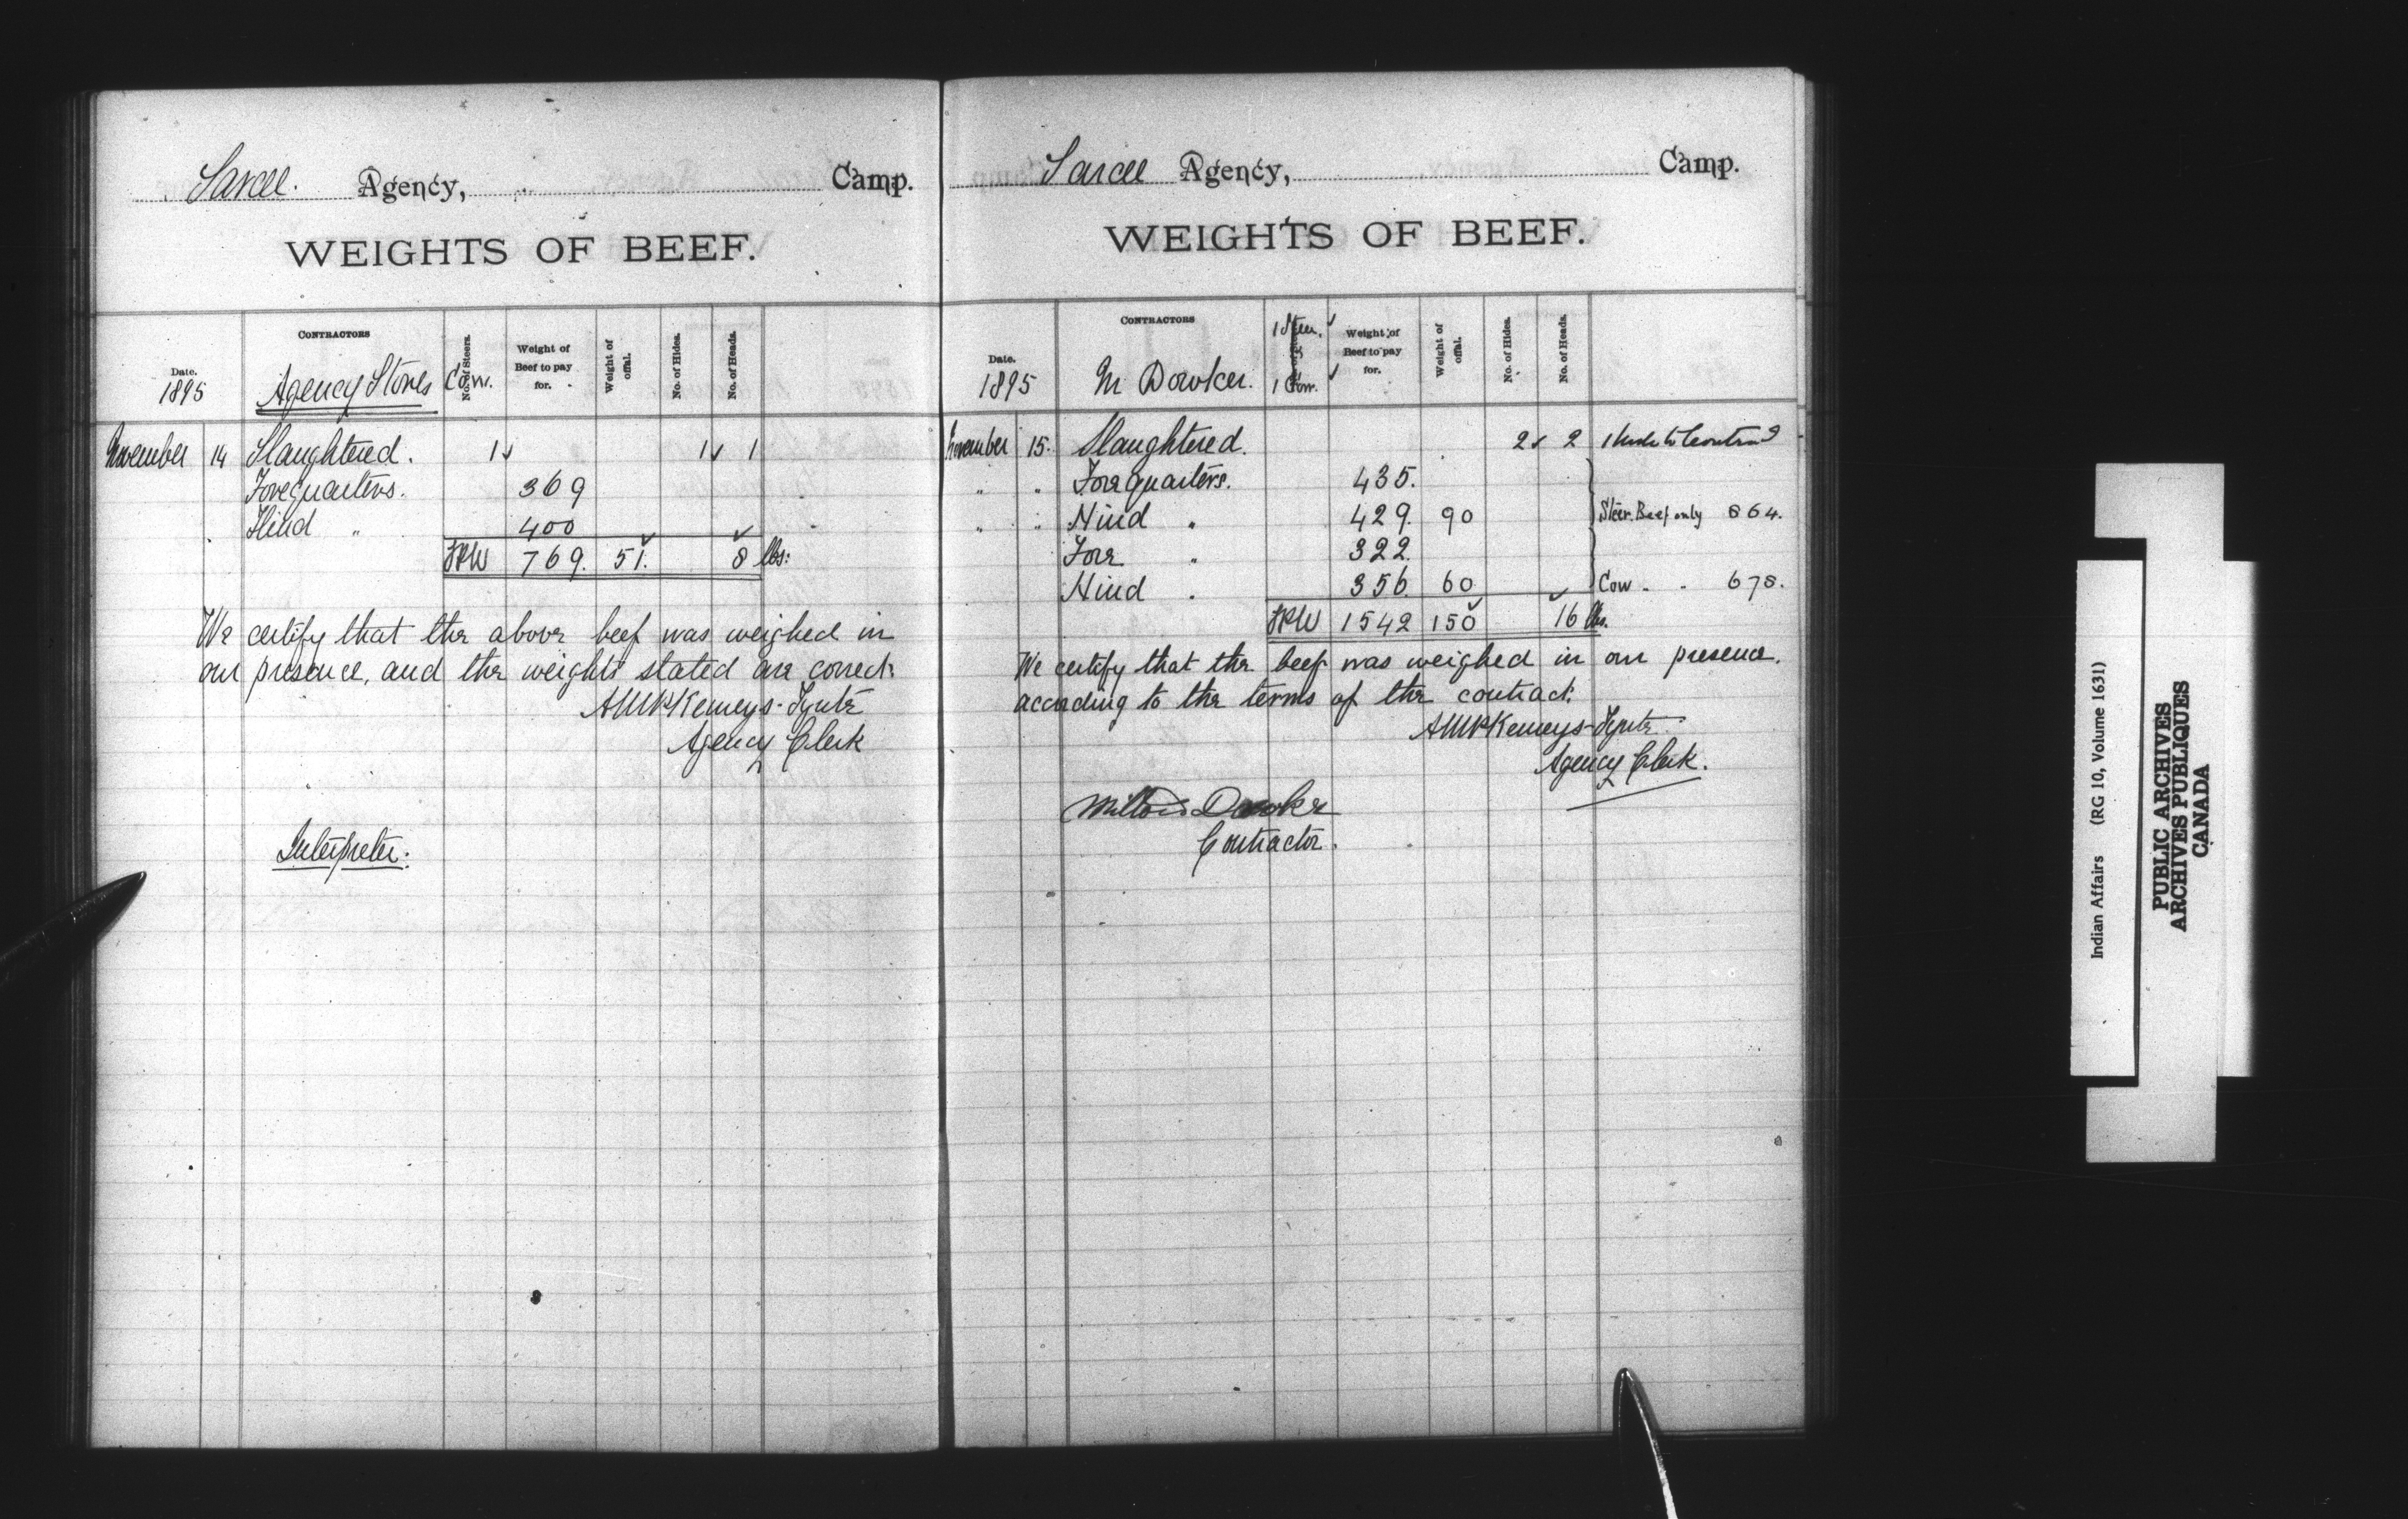 Sarcee. Agency, Camp.
WEIGHTS OF BEEF.
Date. 1895 CONTRACTORS Agency Stores No. of Steers. Cow. Weight of Beef to pay for. Weight of offal. No. of Hides. No. of Heads.
November 14 Slaughtered. 1 1 1
Forequarters. 369
Hind " 400
769. 51. 8 lbs.
We certify that the above beef was weighed in
our presence, and the weights stated are correct.
Kemeys-Tynte
Agency Clerk
Interpreter.
Sarcee Agency, Camp.
WEIGHTS OF BEEF.
Date. 1895 CONTRACTORS M Dowker. 1 Steer. 1 Cow. Weight of Beef to pay for. Weight of offal. No. of Hides. No. of Heads.
November 15. Slaughtered. 2 2 1 hide to
" " Forequarters. 435.
" " Hind " 429. 90 Steer Beef only 864.
Fore " 322.
Hind " 356. 60 Cow " " 678.
1542 150 16 lbs.
We certify that the beef was weighed in our presence.
according to the terms of the contract.
Kemeys-Tynte
Agency Clerk.
Milton Dowker
Contractor.
Indian Affairs (RG 10, Volume 1631)
PUBLIC ARCHIVES
ARCHIVES PUBLIQUES
CANADA